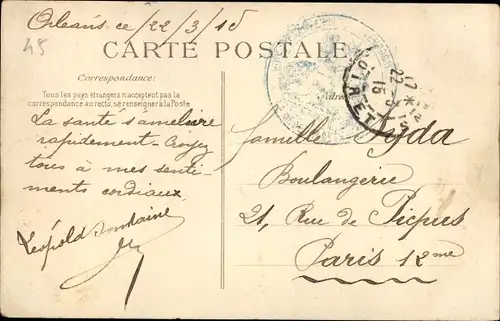 Orléans ce 22/3/15
45
CARTE POSTALE
Correspondance:
Tous les pays étrangers n'acceptent pas la
correspondance au recto, se renseigner à la Poste
La santé s'améliore
rapidement. Croyez
tous à mes senti-
ments cordiaux
Léopold
Famille Syda
Boulangerie
21, Rue de Picpus
Paris 12me
17 *
22 3
15
LOIRET